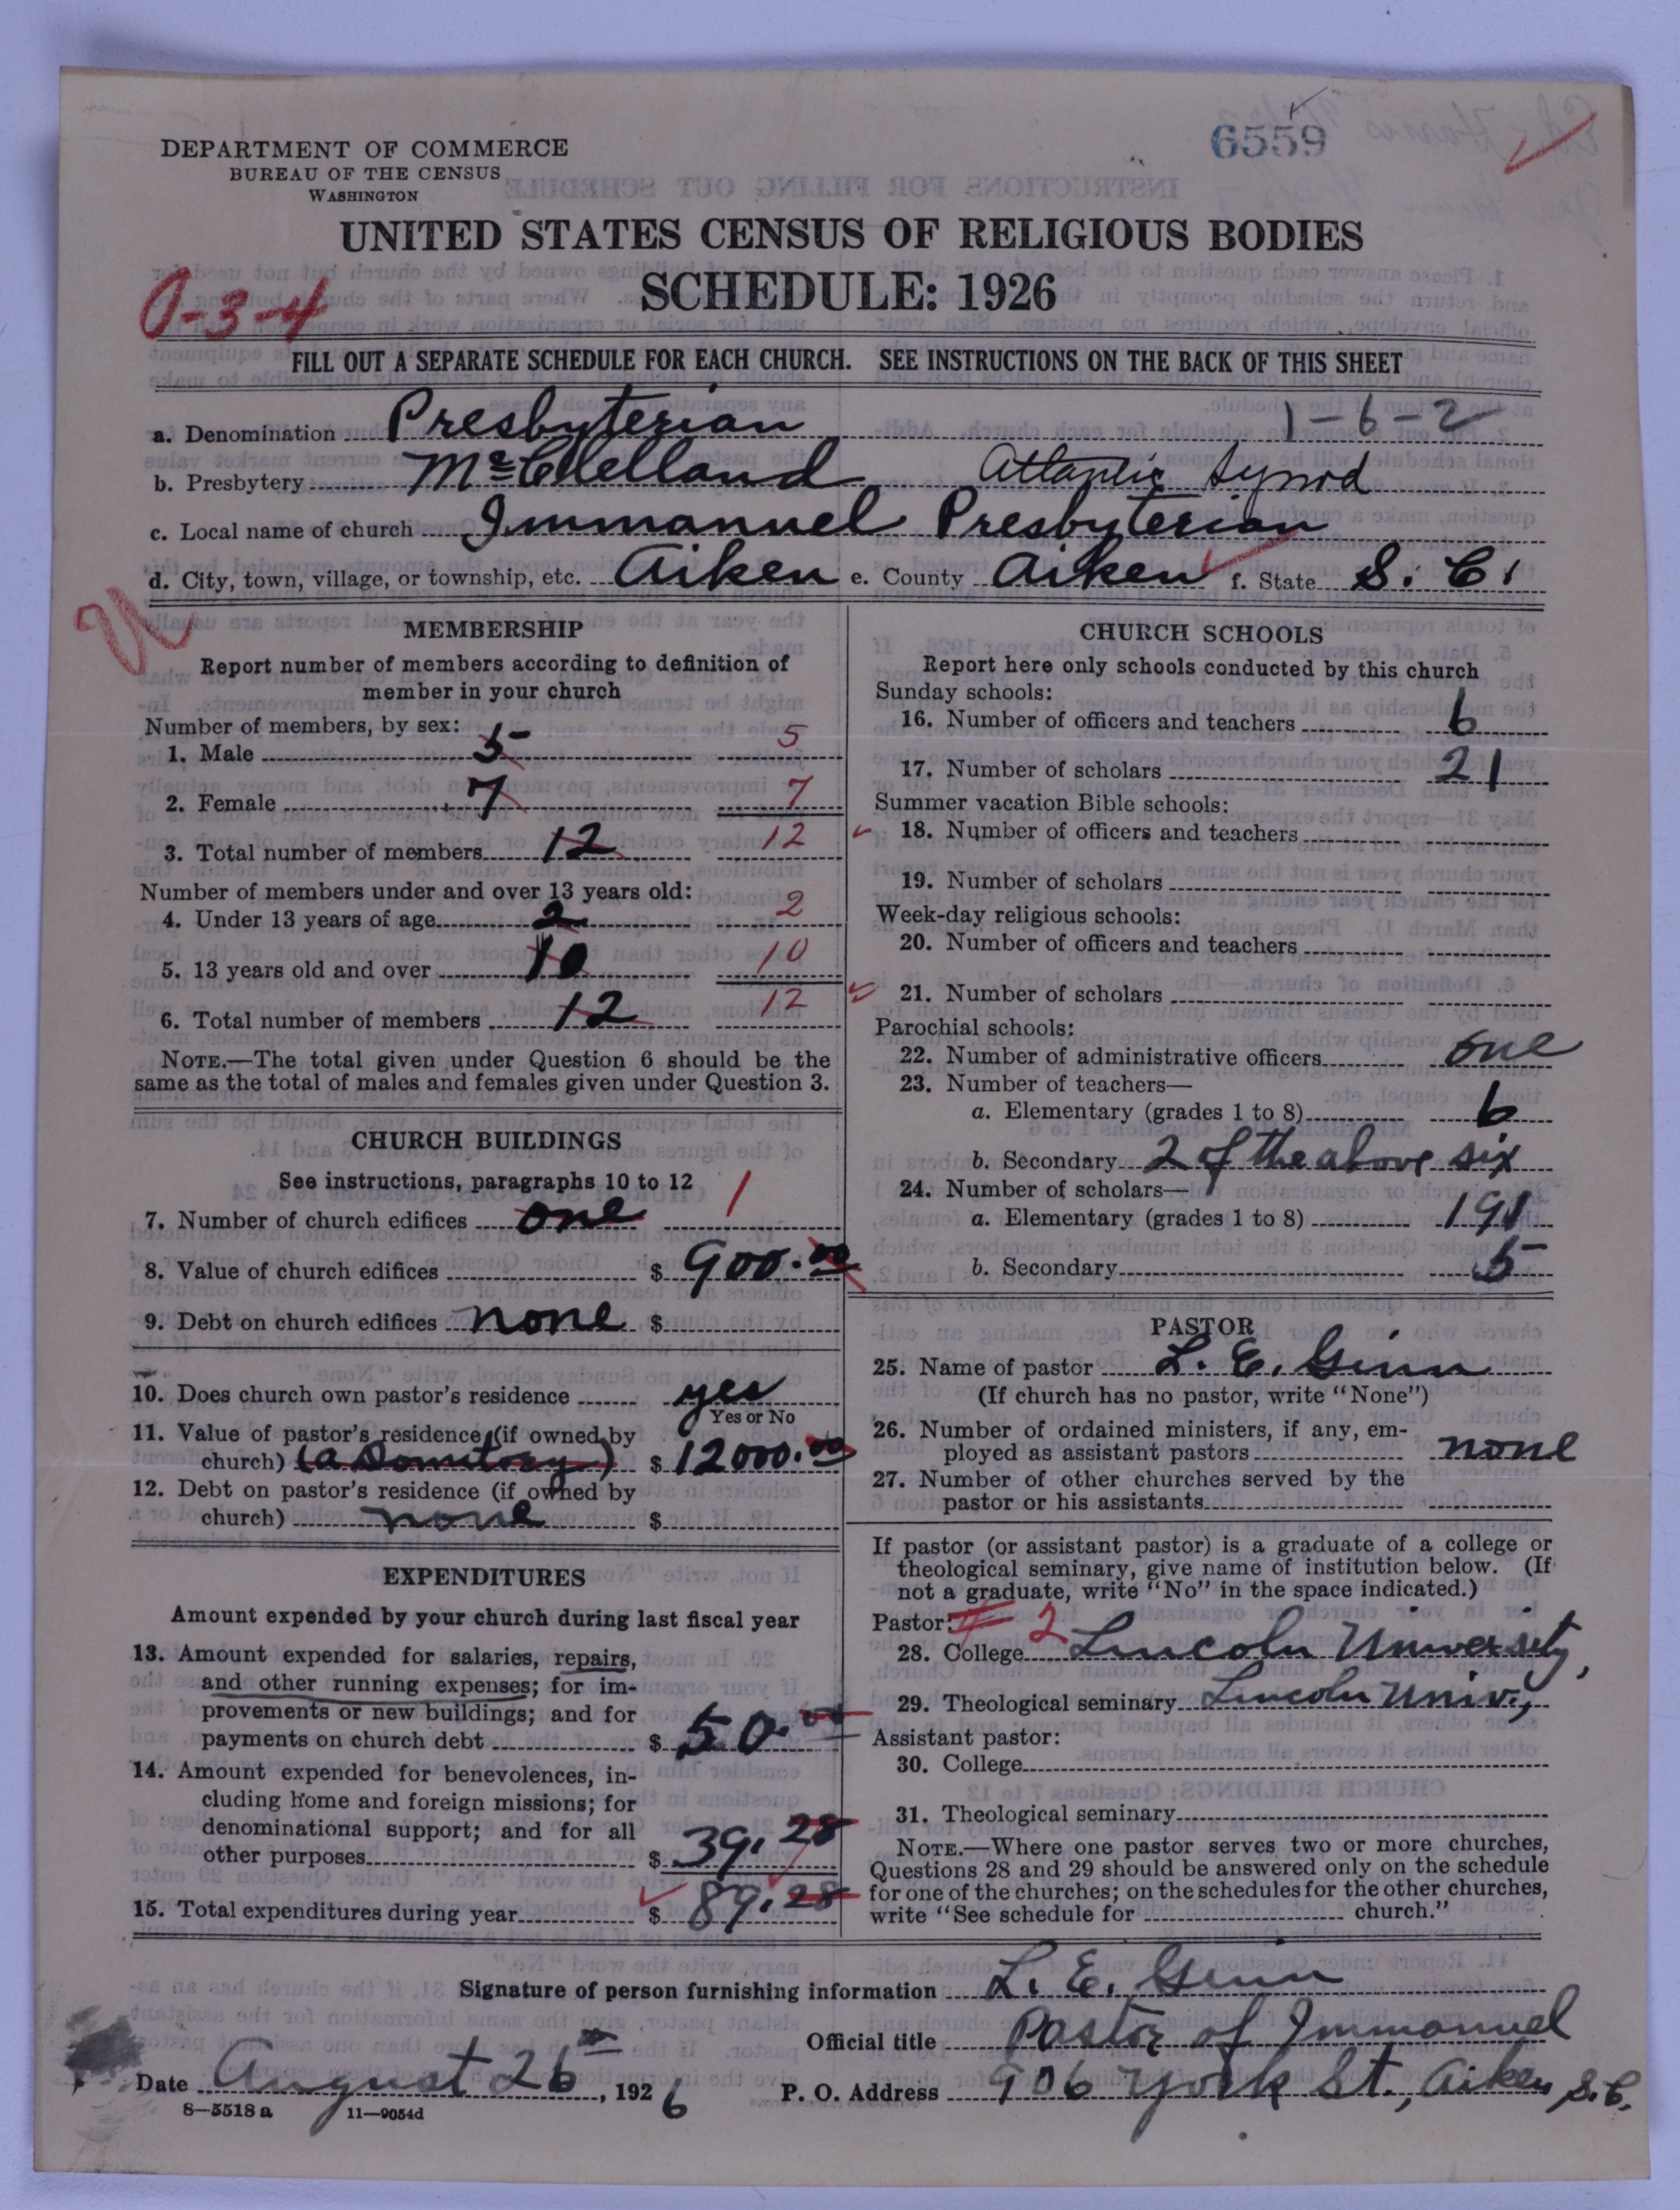 6559
DEPARTMENT OF COMMERCE
BUREAU OF THE CENSUS
WASHINGTON
UNITED STATES CENSUS OF RELIGIOUS BODIES
SCHEDULE: 1926
0-3-4
FILL OUT A SEPARATE SCHEDULE FOR EACH CHURCH. SEE INSTRUCTIONS ON THE BACK OF THIS SHEET
a. Denomination Presbyterian 1-6-2
b. Presbytery McClelland Atlantic Synod
c. Local name of church Immanuel Presbyterian
d. City, town, village, or township, etc. Aiken e. County Aiken f. State S. C.
MEMBERSHIP
Report number of members according to definition of
member in your church
Number of members, by sex:
1. Male 5 5
2. Female 7 7
3. Total number of members 12 12
Number of members under and over 13 years old:
4. Under 13 years of age 2 2
5. 13 years old and over 10 10
6. Total number of members 12 12
NOTE.—The total given under Question 6 should be the
same as the total of males and females given under Question 3.
CHURCH BUILDINGS
See instructions, paragraphs 10 to 12
7. Number of church edifices one 1
8. Value of church edifices $ 900.00
9. Debt on church edifices none $
10. Does church own pastor's residence yes
Yes or No
11. Value of pastor's residence (if owned by
church) (a Domitory) $ 12000.00
12. Debt on pastor's residence (if owned by
church) none $
EXPENDITURES
Amount expended by your church during last fiscal year
13. Amount expended for salaries, repairs,
and other running expenses; for im-
provements or new buildings; and for
payments on church debt $ 50.00
14. Amount expended for benevolences, in-
cluding home and foreign missions; for
denominational support; and for all
other purposes $ 39.28
15. Total expenditures during year $ 89.28
CHURCH SCHOOLS
Report here only schools conducted by this church
Sunday schools:
16. Number of officers and teachers 6
17. Number of scholars 21
Summer vacation Bible schools:
18. Number of officers and teachers
19. Number of scholars
Week-day religious schools:
20. Number of officers and teachers
21. Number of scholars
Parochial schools:
22. Number of administrative officers one
23. Number of teachers—
a. Elementary (grades 1 to 8) 6
b. Secondary 2 of the above six
24. Number of scholars—
a. Elementary (grades 1 to 8) 191
b. Secondary 5
PASTOR
25. Name of pastor L. E. Ginn
(If church has no pastor, write "None")
26. Number of ordained ministers, if any, em-
ployed as assistant pastors none
27. Number of other churches served by the
pastor or his assistants
If pastor (or assistant pastor) is a graduate of a college or
theological seminary, give name of institution below. (If
not a graduate, write "No" in the space indicated.)
Pastor: 2
28. College Lincoln University,
29. Theological seminary Lincoln Univ.,
Assistant pastor:
30. College
31. Theological seminary
NOTE.—Where one pastor serves two or more churches,
Questions 28 and 29 should be answered only on the schedule
for one of the churches; on the schedules for the other churches,
write "See schedule for church."
Signature of person furnishing information L. E. Ginn
Official title Pastor of Immanuel
Date August 26th, 1926 P. O. Address 906 York St., Aiken, S.C.
8—5518 a 11—9054d